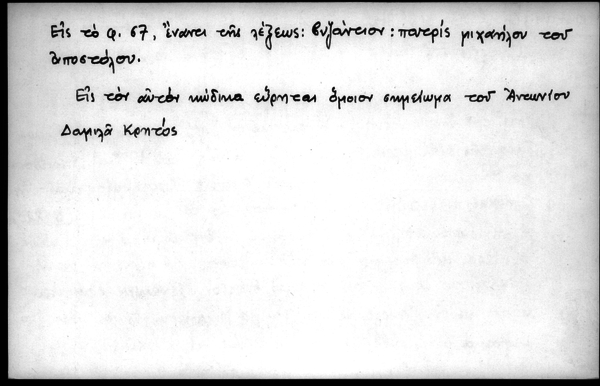 Εἰς τὸ φ. 67, ἔναντι τῆς λέξεως: Βυζάντιον: πατρίς μιχαήλου τοῦ
ἀποστόλου.
Εἰς τὸν αὐτὸν κώδικα εὕρηται ὅμοιον σημείωμα τοῦ Ἀντωνίου
Δαμιλᾶ Κρητός